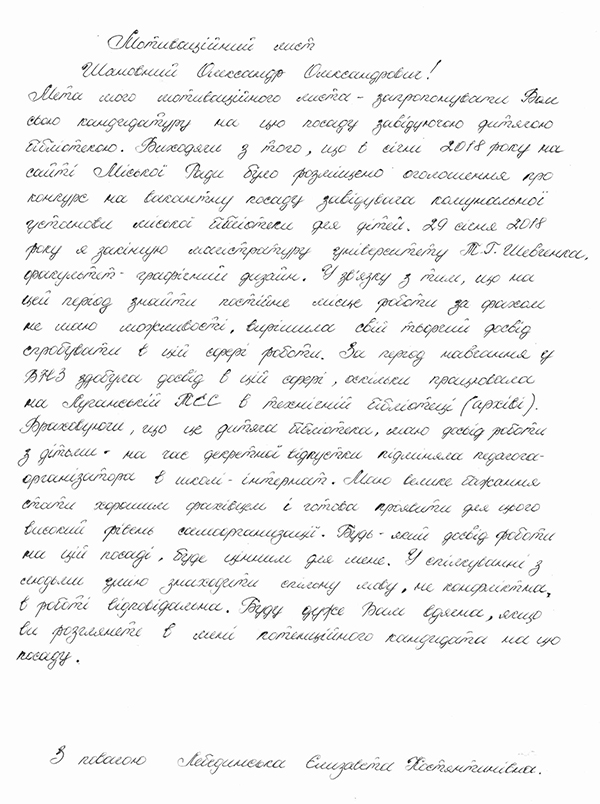 Мотиваційний лист
Шановний Олександр Олександрович!
Мета мого мотиваційного листа - запропонувати Вам
свою кандидатуру на цю посаду завідуючою дитячою
бібліотекою. Виходячи з того, що в січні 2018 року на
сайті Міської Ради було розміщено оголошення про
конкурс на вакантну посаду завідувача комунальної
установи міської бібліотеки для дітей. 29 січня 2018
року я закінчую магістратуру університету Т.Г. Шевченка,
факультет - графічний дизайн. У зв'язку з тим, що на
цей період знайти постійне місце роботи за фахом
не маю можливості, вирішила свій творчий досвід
спробувати в цій сфері роботи. За період навчання у
ВНЗ здобула досвід в цій сфері, оскільки працювала
на Луганській ТЕС в технічній бібліотеці (архіві).
Враховуючи, що це дитяча бібліотека, маю досвід роботи
з дітьми - на час декретної відпустки підміняла педагога-
організатора в школі - інтернат. Маю велике бажання
стати хорошим фахівцем і готова проявити для цього
високий рівень самоорганизації. Будь - який досвід роботи
на цій посаді, буде цінним для мене. У спілкуванні з
людьми умію знаходити спільну мову, не конфліктна,
в роботі відповідальна. Буду дуже Вам вдячна, якщо
ви розглянете в мені потенційного кандидата на цю
посаду.
З повагою Лебединська Єлизавета Костянтинівна.